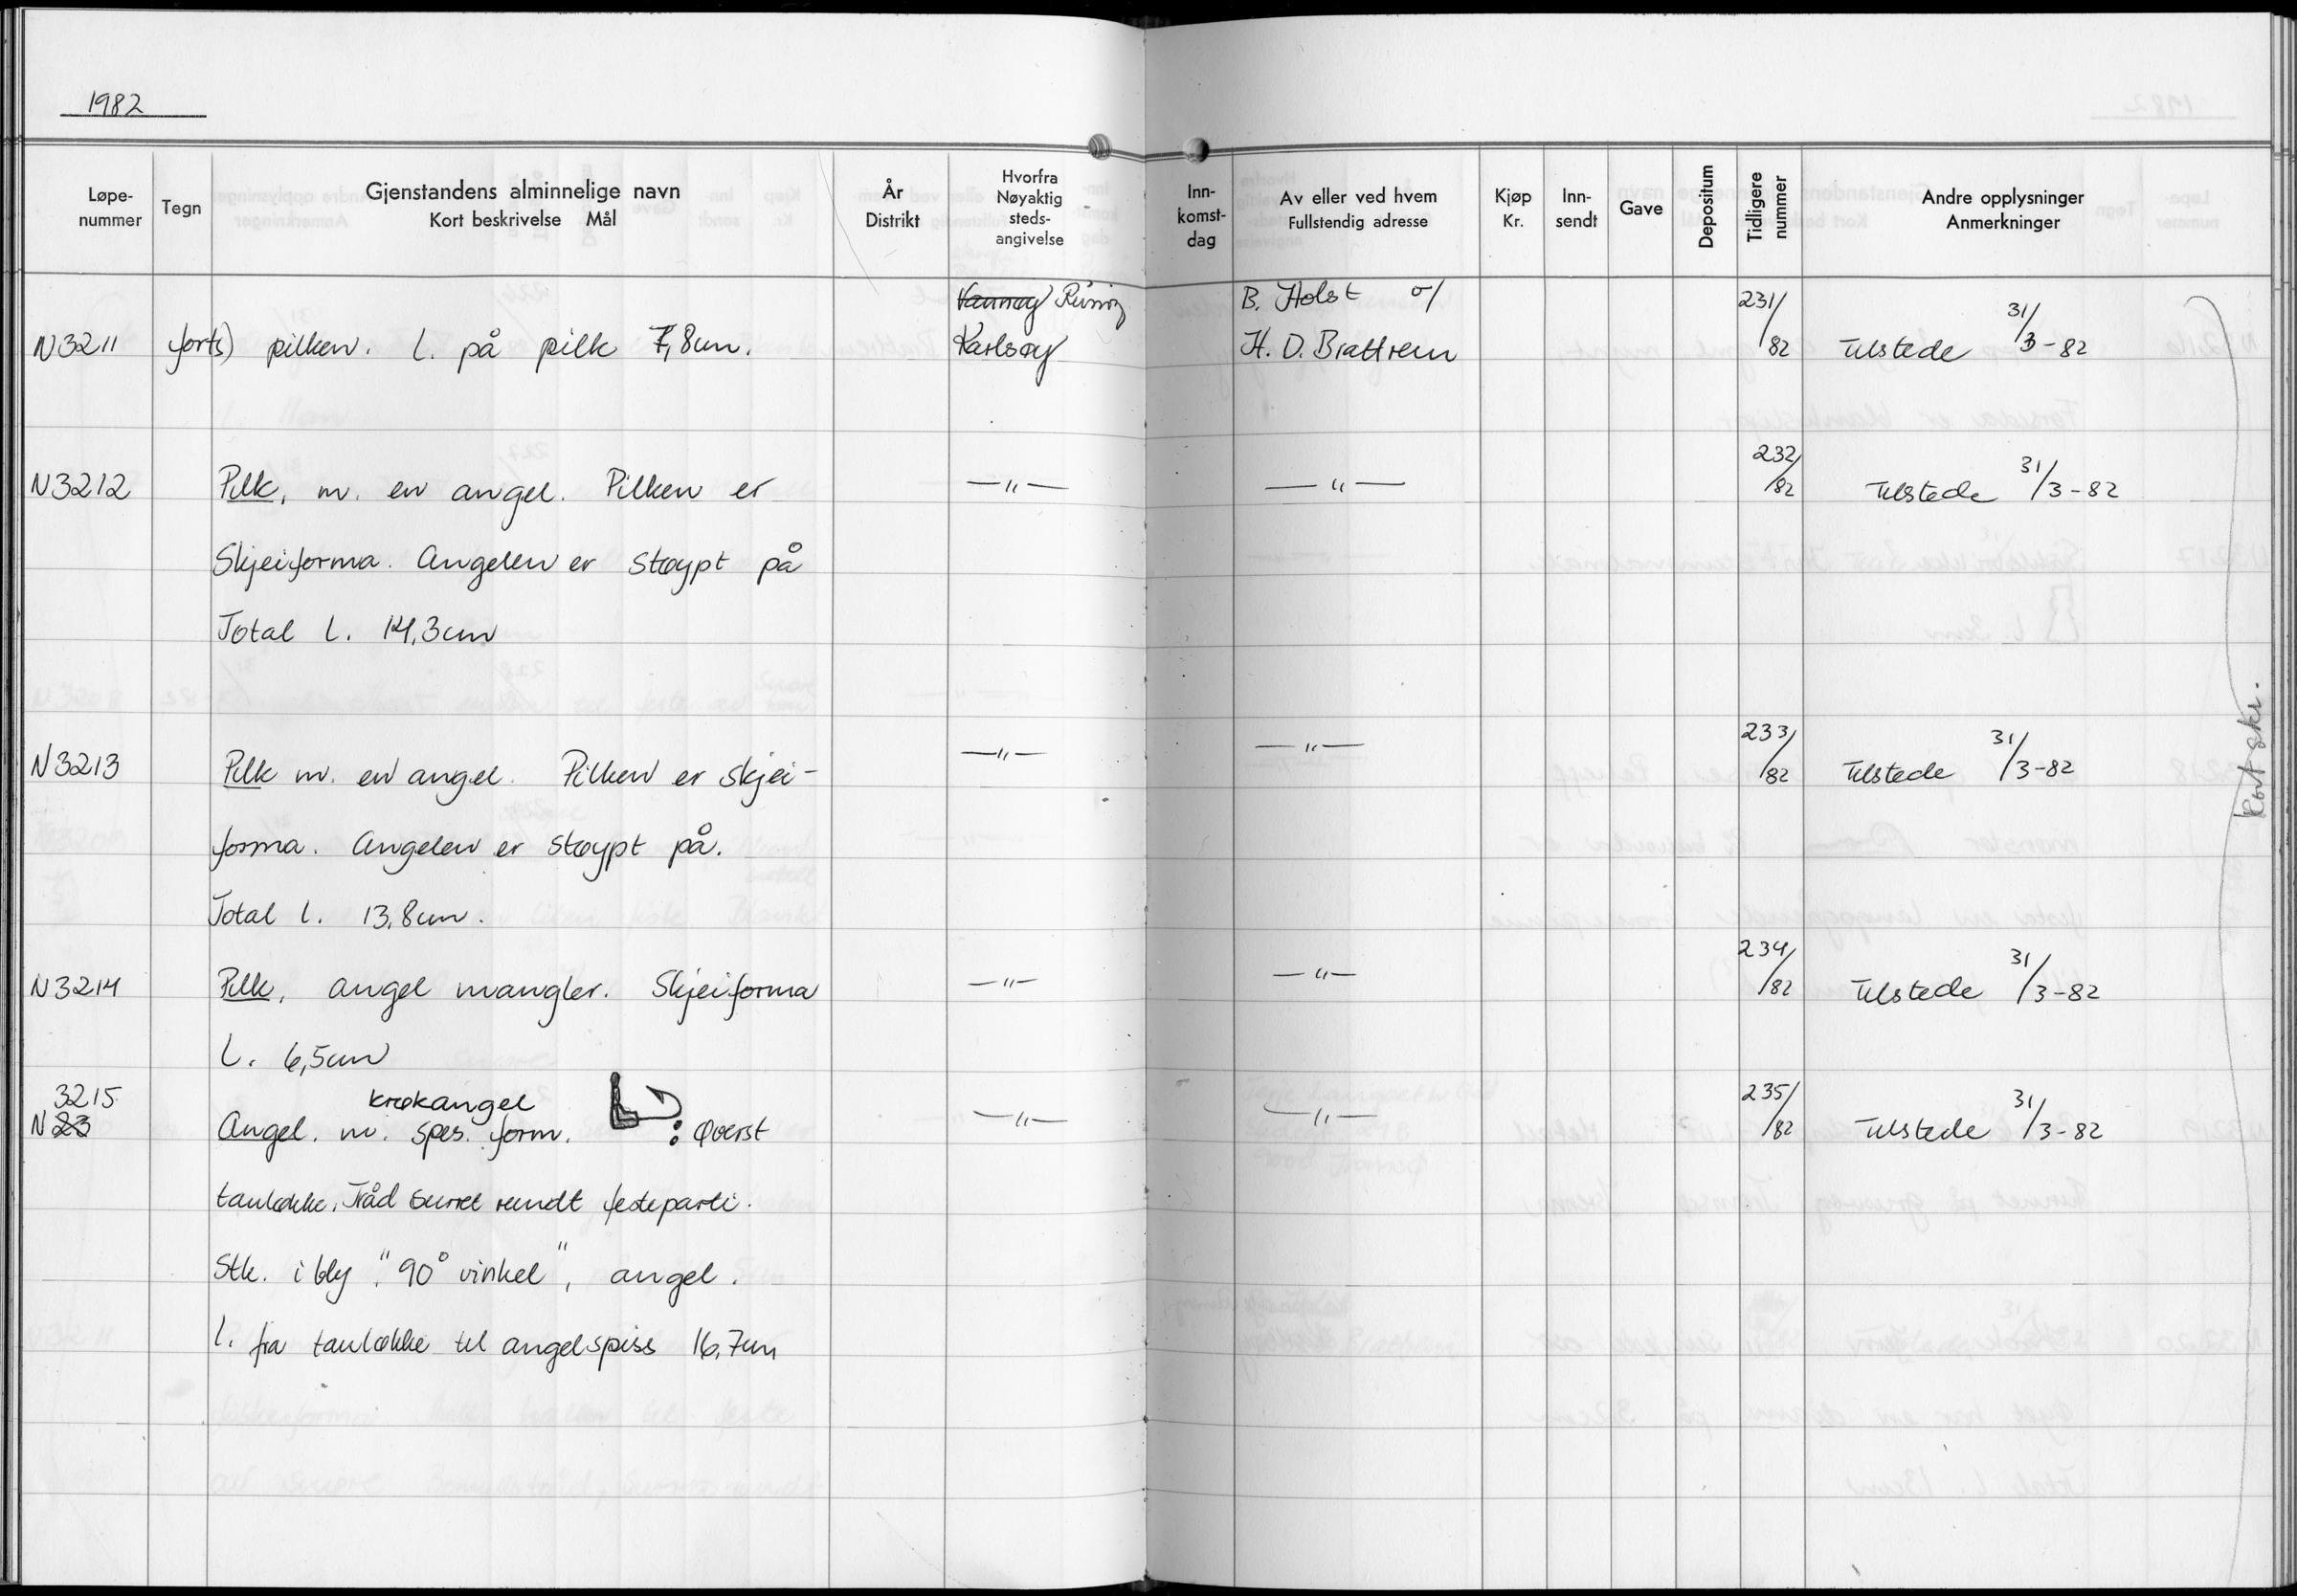 1982
Løpe-
nummer
Tegn
Gjenstandens alminnelige navn
Kort beskrivelse Mål
År
Distrikt
Hvorfra
Nøyaktig
steds-
angivelse
Inn-
komst-
dag
Av eller ved hvem
Fullstendig adresse
Kjøp
Kr.
Inn-
sendt
Gave
Depositum
Tidligere
nummer
Andre opplysninger
Anmerkninger
Vannøy B. Holst v/ 231/ 31/
N3211 forts) pilken. L. på pilk 7,8cm. Karlsøy H. D. Brattrein /82 Tilstede /3-82
232/ 31/
N3212 Pilk, m. en angel. Pilken er —"— —"— /82 Tilstede /3-82
Skjeiforma. Angelen er støypt på
Total L. 14,3cm
233/ 31/
N3213 Pilk m. en angel. Pilken er skjei- —"— —"— /82 Tilstede /3-82
forma. Angelen er støypt på.
Total l. 13,8cm.
234/ 31/
N3214 Pilk, angel mangler. Skjeiforma —"— —"— /82 Tilstede /3-82
L. 6,5cm
3215 krokangel 235/ 31/
N23 Angel. m. spes. form. : Øverst —"— —"— /82 Tilstede /3-82
tauløkke, Tråd surret rundt festeparti.
Stk. i bly "90° vinkel", angel.
l. fra tauløkke til angelspiss 16,7cm
Kort skr.